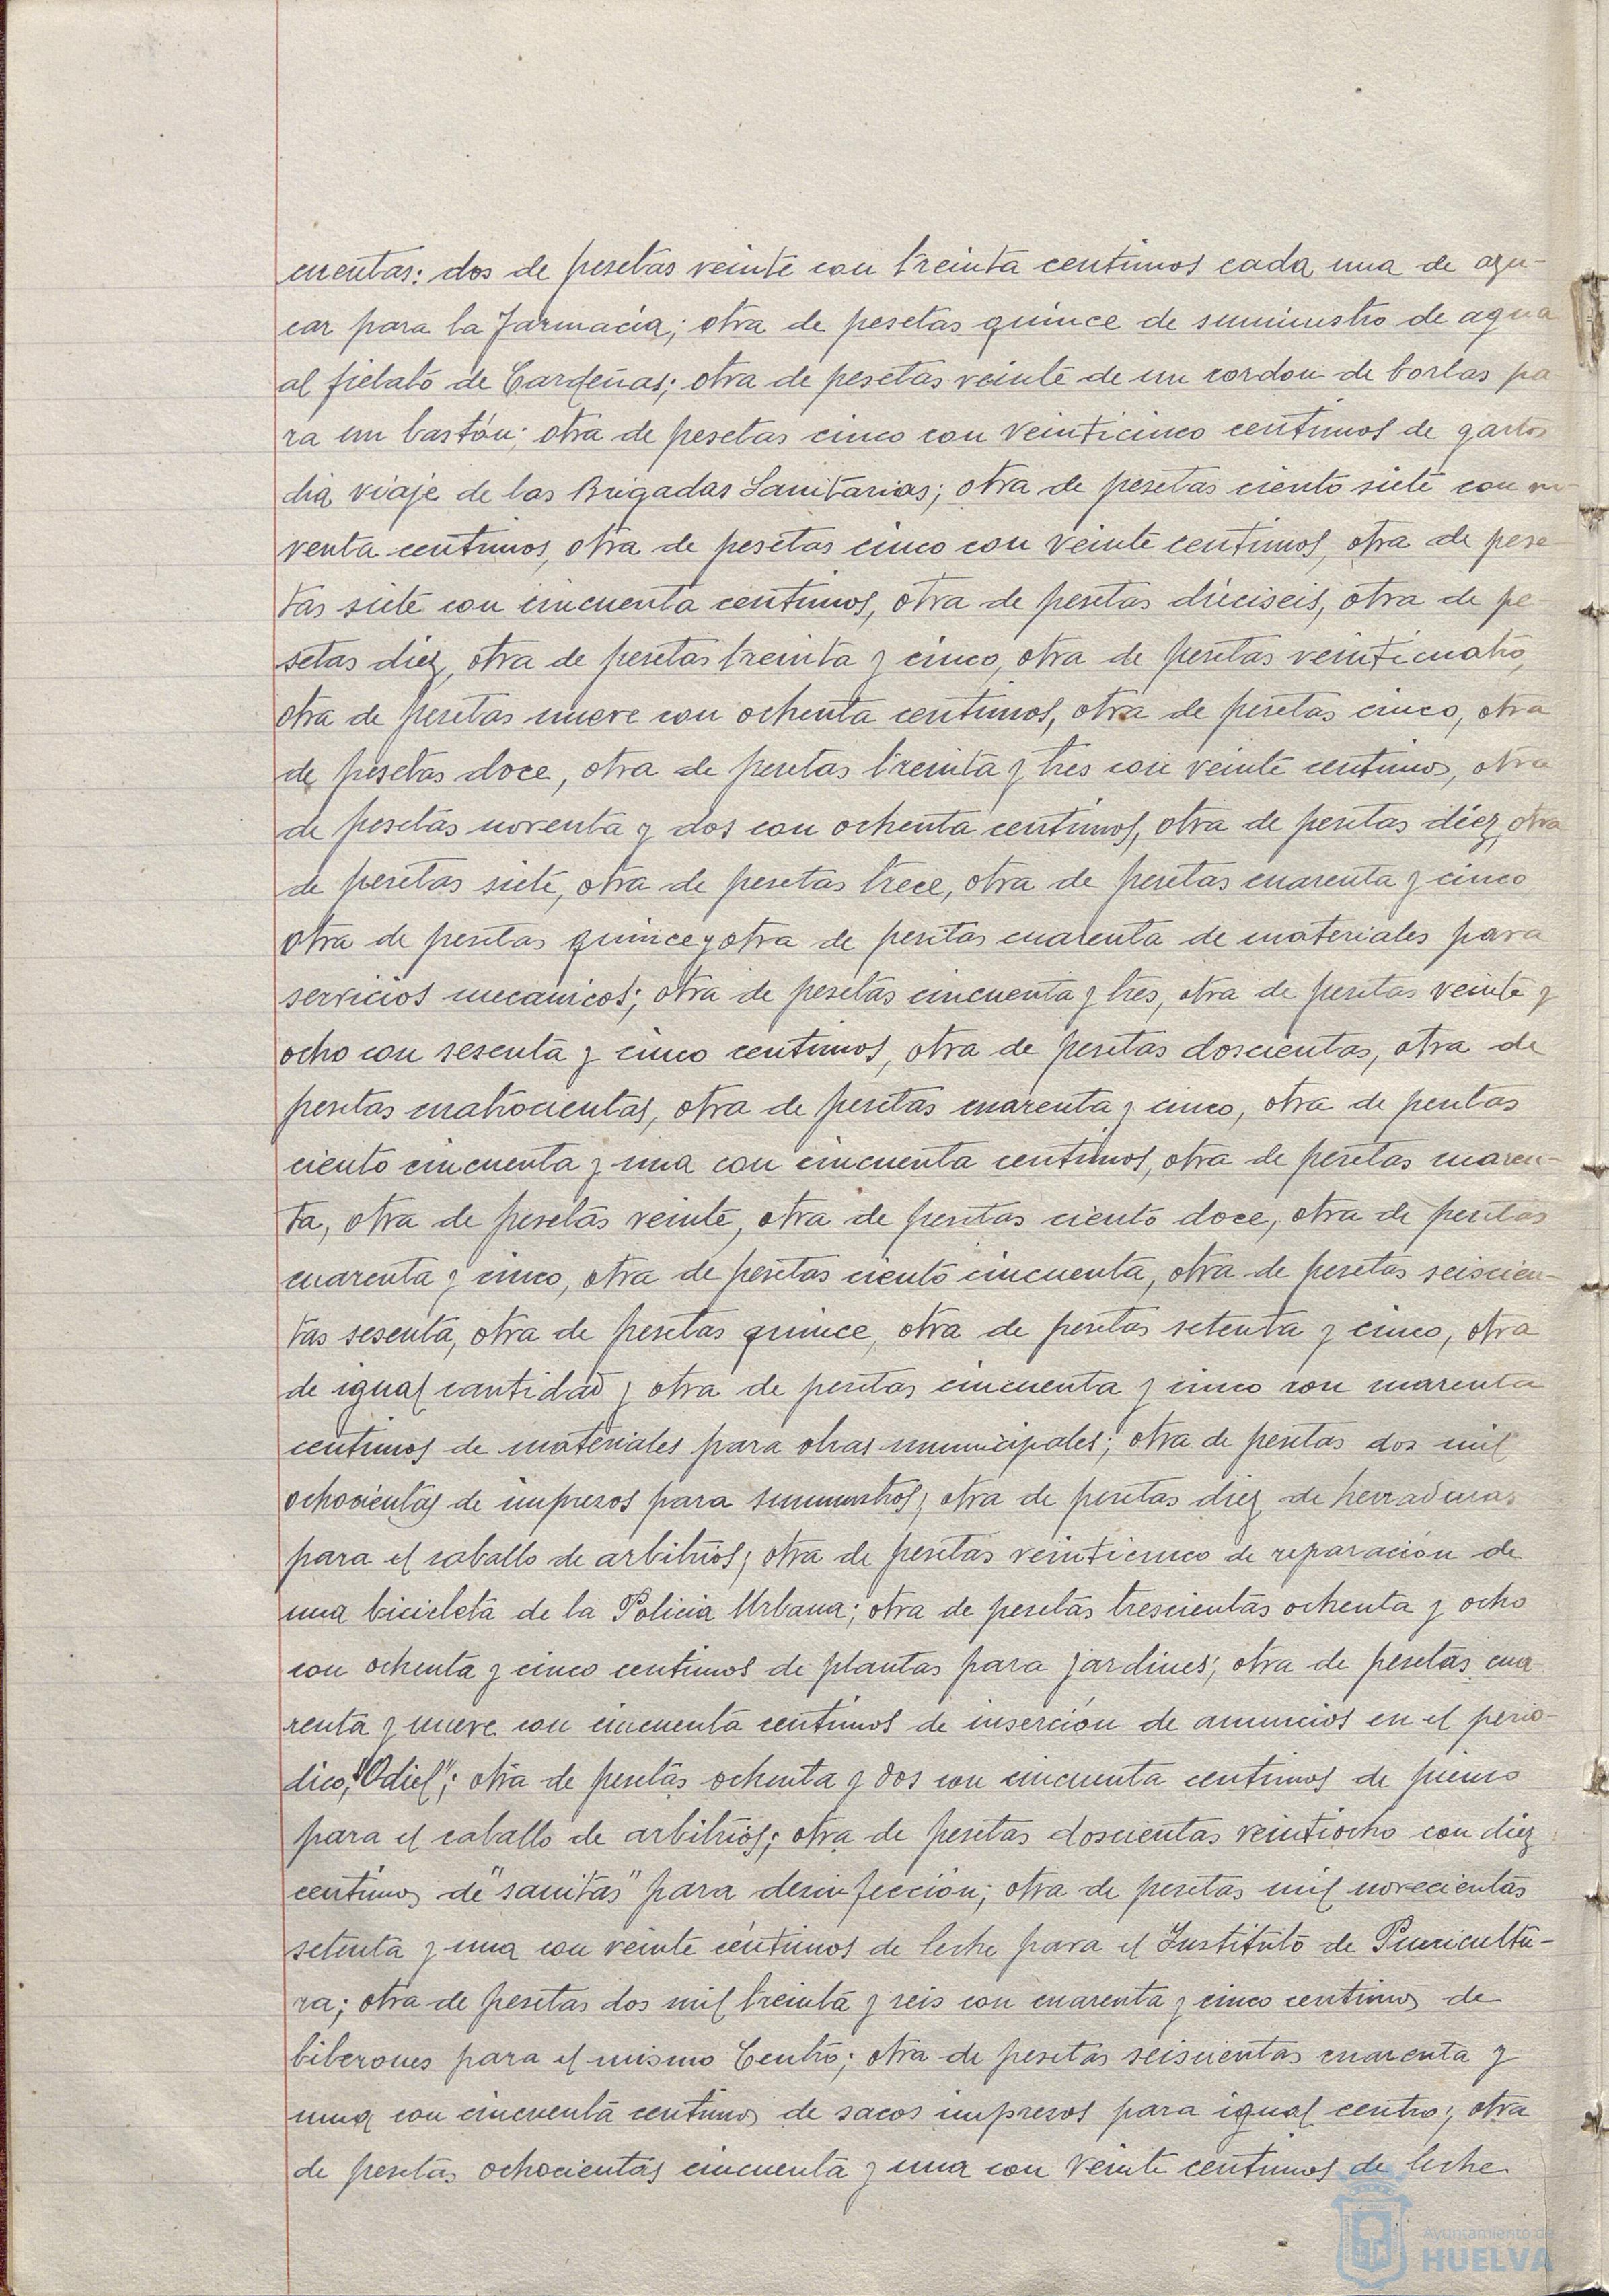 cuentas: dos de pesetas veinte con treinta centimos cada una de azu-
car para la Farmacia; otra de pesetas quince de suministro de agua
al fielato de Cardeñas; otra de pesetas veinte de un cordon de borlas pa-
ra un bastón; otra de pesetas cinco con veinticinco centimos de gastos
dia viaje de las Brigadas Sanitarias; otra de pesetas ciento siete con no-
venta centimos, otra de pesetas cinco con veinte centimos, otra de pese-
tas siete con cincuenta centimos, otra de pesetas dieciseis, otra de pe-
setas diez, otra de pesetas treinta y cinco, otra de pesetas veinticuatro,
otra de pesetas nueve con ochenta centimos, otra de pesetas cinco, otra
de pesetas doce, otra de pesetas treinta y tres con veinte centimos, otra
de pesetas noventa y dos con ochenta centimos, otra de pesetas diez, otra
de pesetas siete, otra de pesetas trece, otra de pesetas cuarenta y cinco
otra de pesetas quince y otra de pesetas cuarenta de materiales para
servicios mecanicos; otra de pesetas cincuenta y tres, otra de pesetas veinte y
ocho con sesenta y cinco centimos, otra de pesetas doscientas, otra de
pesetas cuatrocientas, otra de pesetas cuarenta y cinco, otra de pesetas
ciento cincuenta y una con cincuenta centimos, otra de pesetas cuaren-
ta, otra de pesetas veinte, otra de pesetas ciento doce, otra de pesetas
cuarenta y cinco, otra de pesetas ciento cincuenta, otra de pesetas seiscien-
tas sesenta, otra de pesetas quince, otra de pesetas setenta y cinco, otra
de igual cantidad y otra de pesetas cincuenta y cinco con cuarenta
centimos de materiales para obras municipales; otra de pesetas dos mil
ochocientas de impresos para suministros; otra de pesetas diez de herraduras
para el caballo de arbitrios; otra de pesetas veinticinco de reparación de
una bicicleta de la Policia Urbana; otra de pesetas trescientas ochenta y ocho
con ochenta y cinco centimos de plantas para jardines; otra de pesetas cua-
renta y nueve con cincuenta centimos de inserción de anuncios en el perio-
dico, "Odiel"; otra de pesetas ochenta y dos con cincuenta centimos de pienso
para el caballo de arbitrios; otra de pesetas doscientas veintiocho con diez
centimos de "sanitas" para desinfección; otra de pesetas mil novecientas
setenta y una con veinte centimos de leche para el Instituto de Puericultu-
ra; otra de pesetas dos mil treinta y seis con cuarenta y cinco centimos de
biberones para el mismo Centro; otra de pesetas seiscientas cuarenta y
una con cincuenta centimos de sacos impresos para igual centro; otra
de pesetas ochocientas cincuenta y una con veinte centimos de leche
Ayuntamiento de
HUELVA